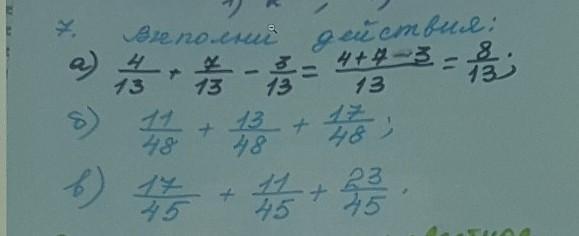 7. Выполни действия:
а) 4/13 + 7/13 - 3/13 = (4+7-3)/13 = 8/13;
б) 11/48 + 13/48 + 17/48;
в) 17/45 + 11/45 + 23/45.